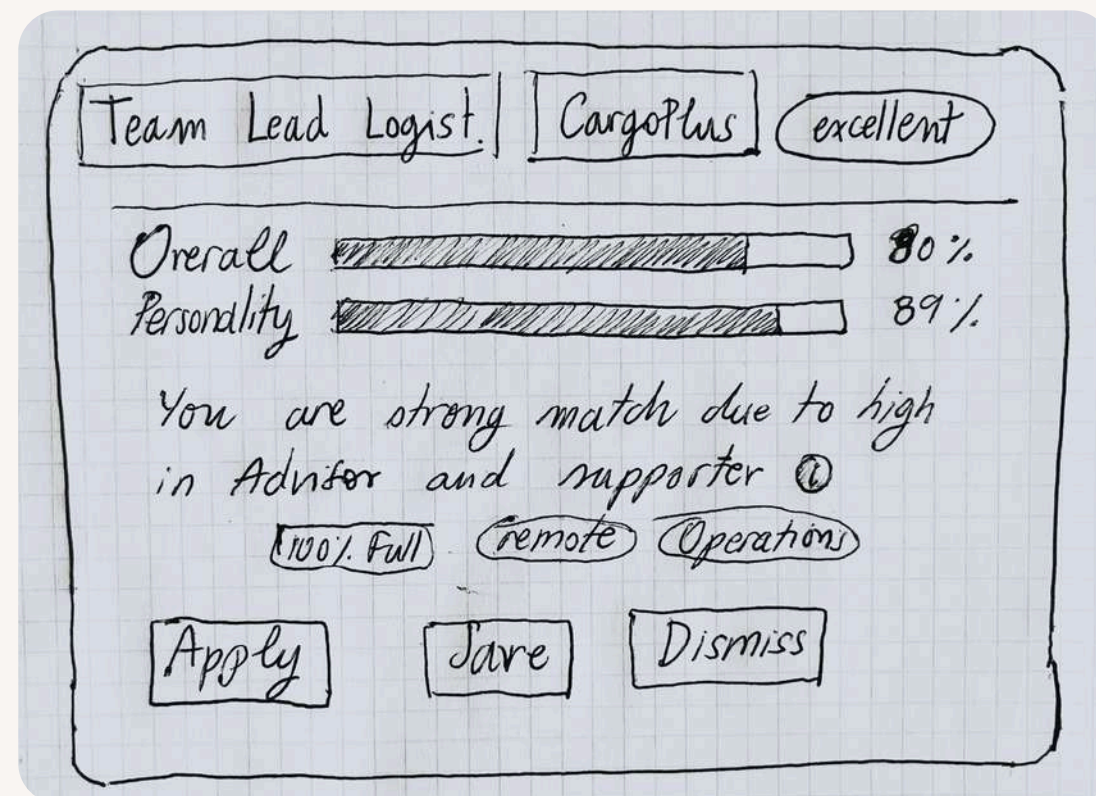 Team Lead Logist. CargoPlus excellent
Overall 80%
Personality 89%
You are strong match due to high
in Advisor and supporter i
100% Full remote Operations
Apply Save Dismiss